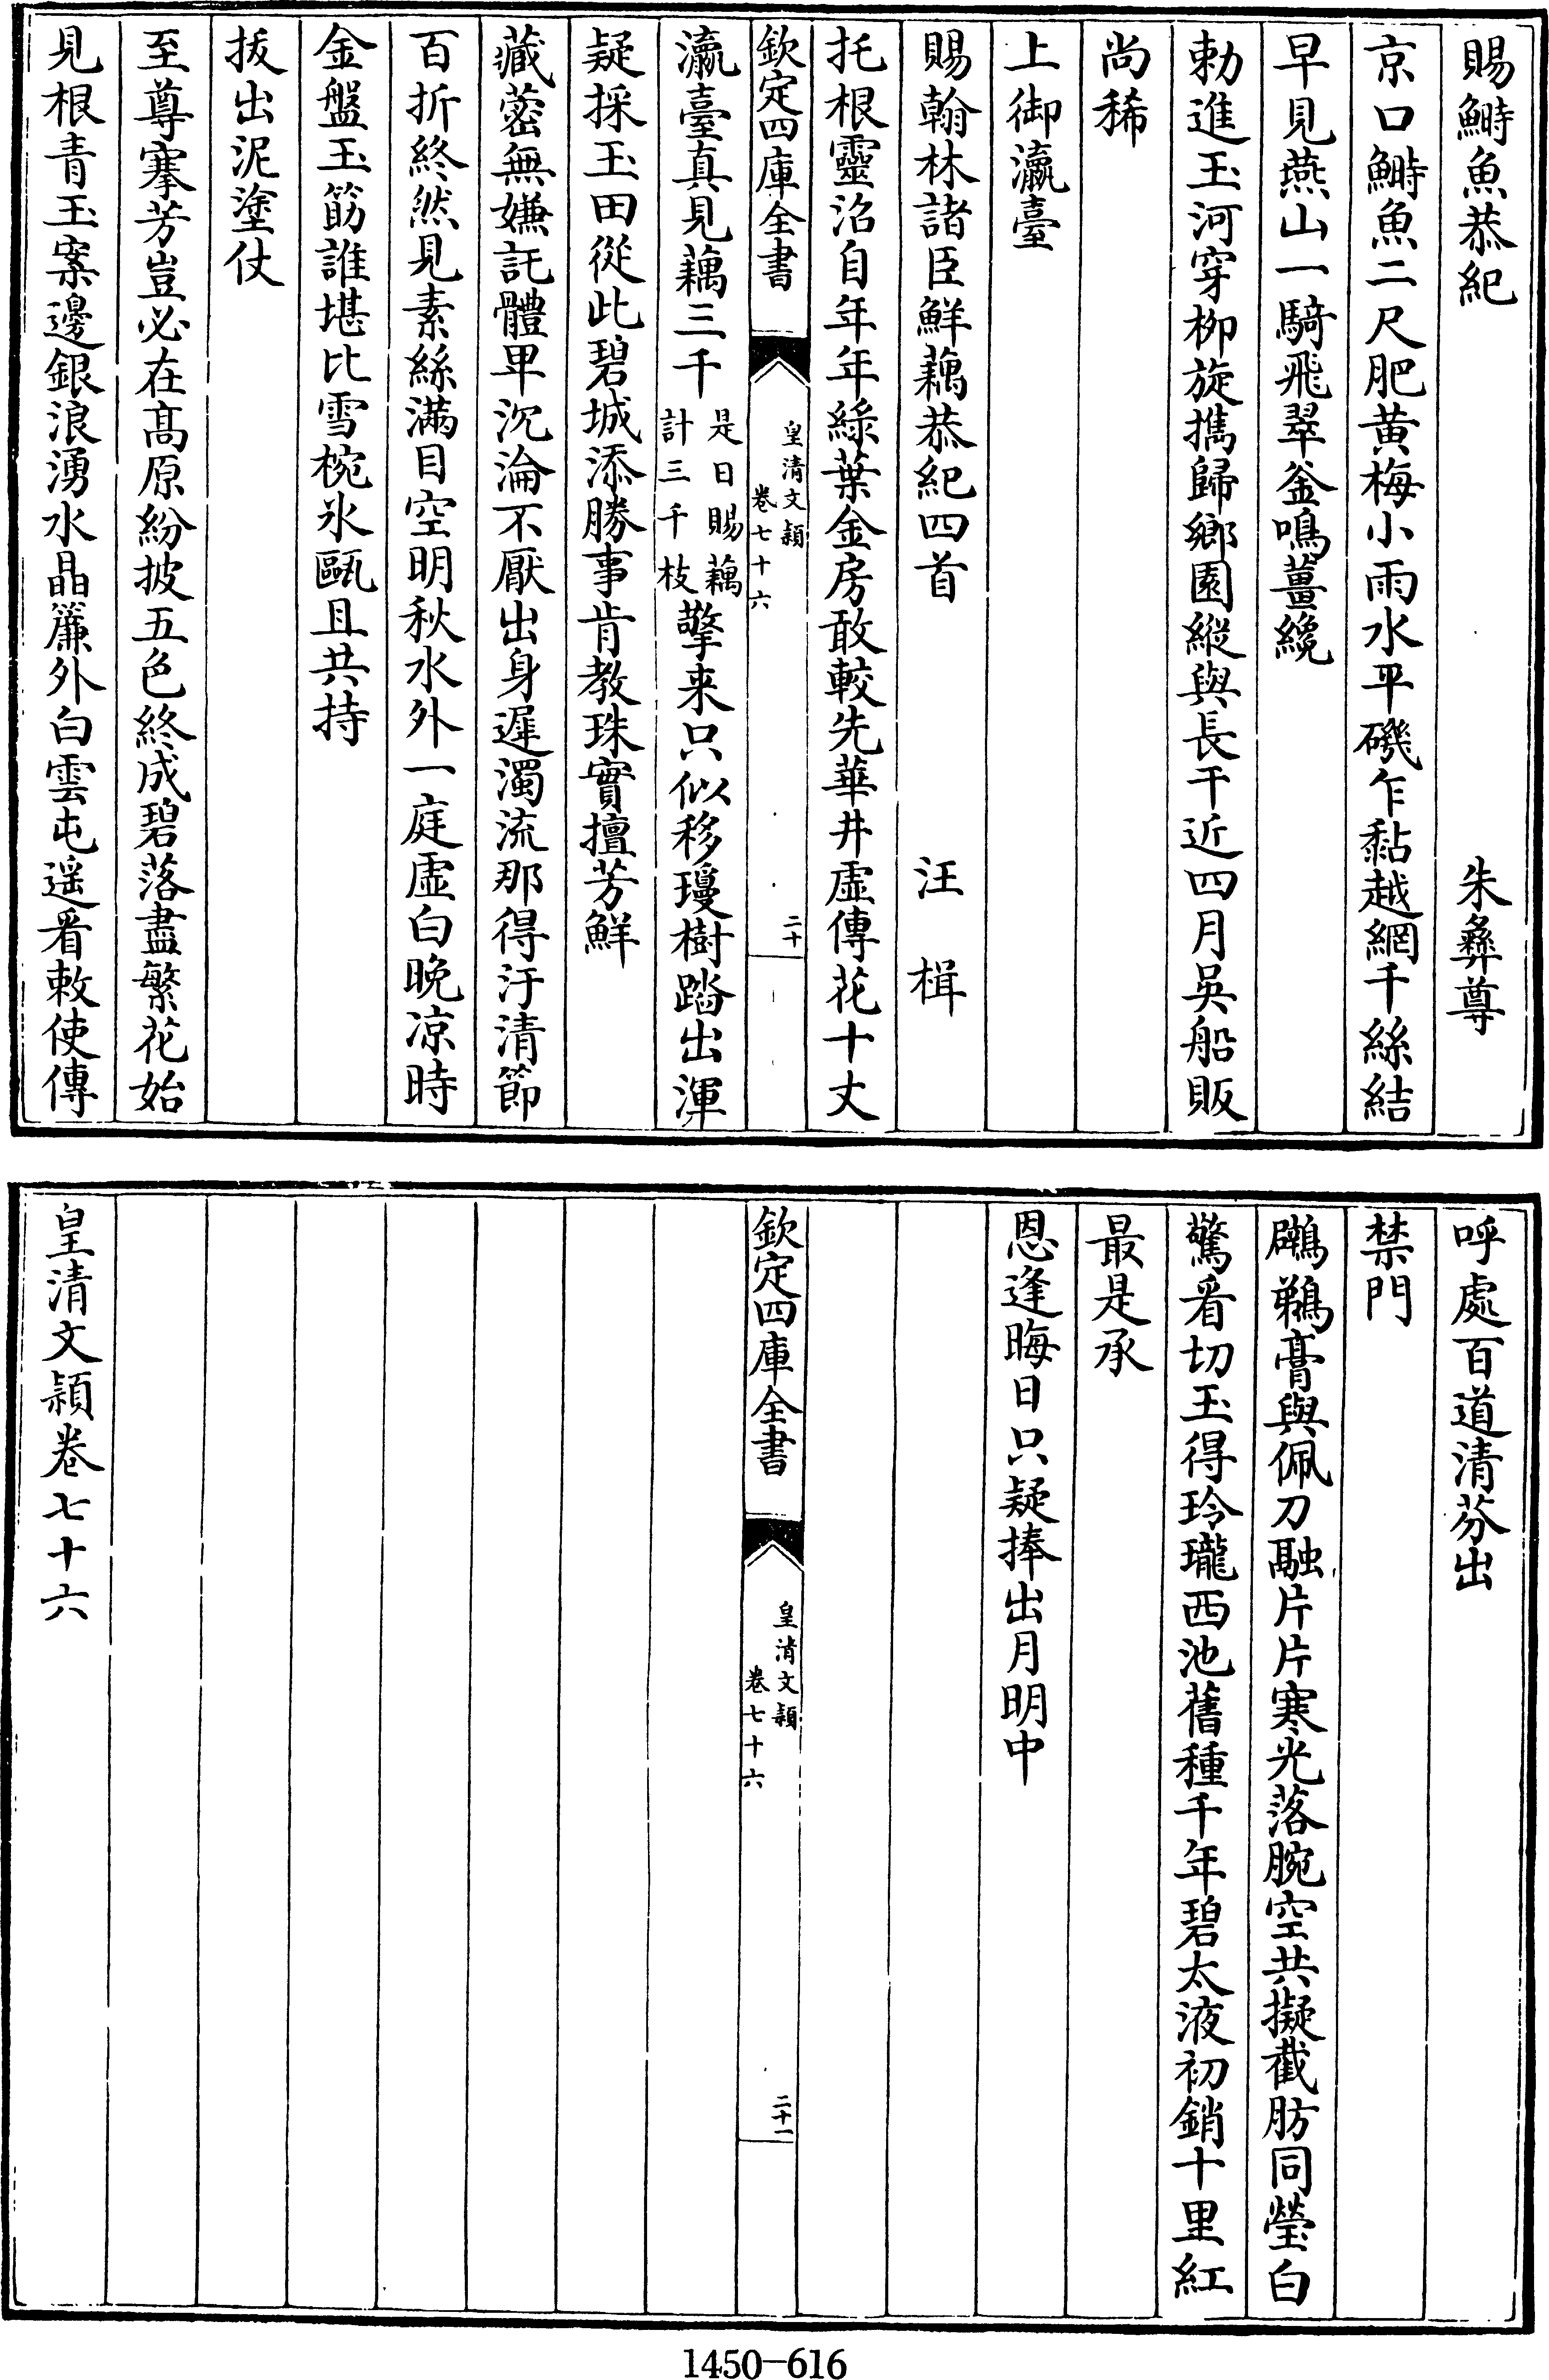 賜鰣魚恭紀　朱彝尊
京口鰣魚二尺肥黄梅小雨水平磯乍黏越網千絲結
早見燕山一騎飛翠釜鳴薑纔
勅進玉河穿柳旋擕歸鄉園縱與長干近四月吳船販
尚稀
上御瀛臺
賜翰林諸臣鮮藕恭紀四首　汪楫
托根靈沼自年年綠葉金房敢較先華井虛傳花十丈
欽定四庫全書
皇清文穎
卷七十六
二十
瀛臺真見藕三千是日賜藕計三千枝擎来只似移瓊樹踏出渾
疑採玉田從此碧城添勝事肯教珠實擅芳鮮
藏宻無嫌託體卑沉淪不厭出身遲濁流那得汙清節
百折終然見素絲滿目空明秋水外一庭虛白晚凉時
金盤玉筯誰堪比雪椀氷甌且共持
拔出泥塗仗
至尊搴芳豈必在髙原紛披五色終成碧落盡繁花始
見根青玉案邊銀浪湧水晶簾外白雲屯遥看敕使傳
呼處百道清芬出
禁門
鸊鵜膏與佩刀融片片寒光落腕空共擬截肪同瑩白
驚看切玉得玲瓏西池舊種千年碧太液初銷十里紅
最是承
恩逢晦日只疑捧出月明中
欽定四庫全書
皇清文穎
卷七十六
二十一
皇清文穎卷七十六
1450-616